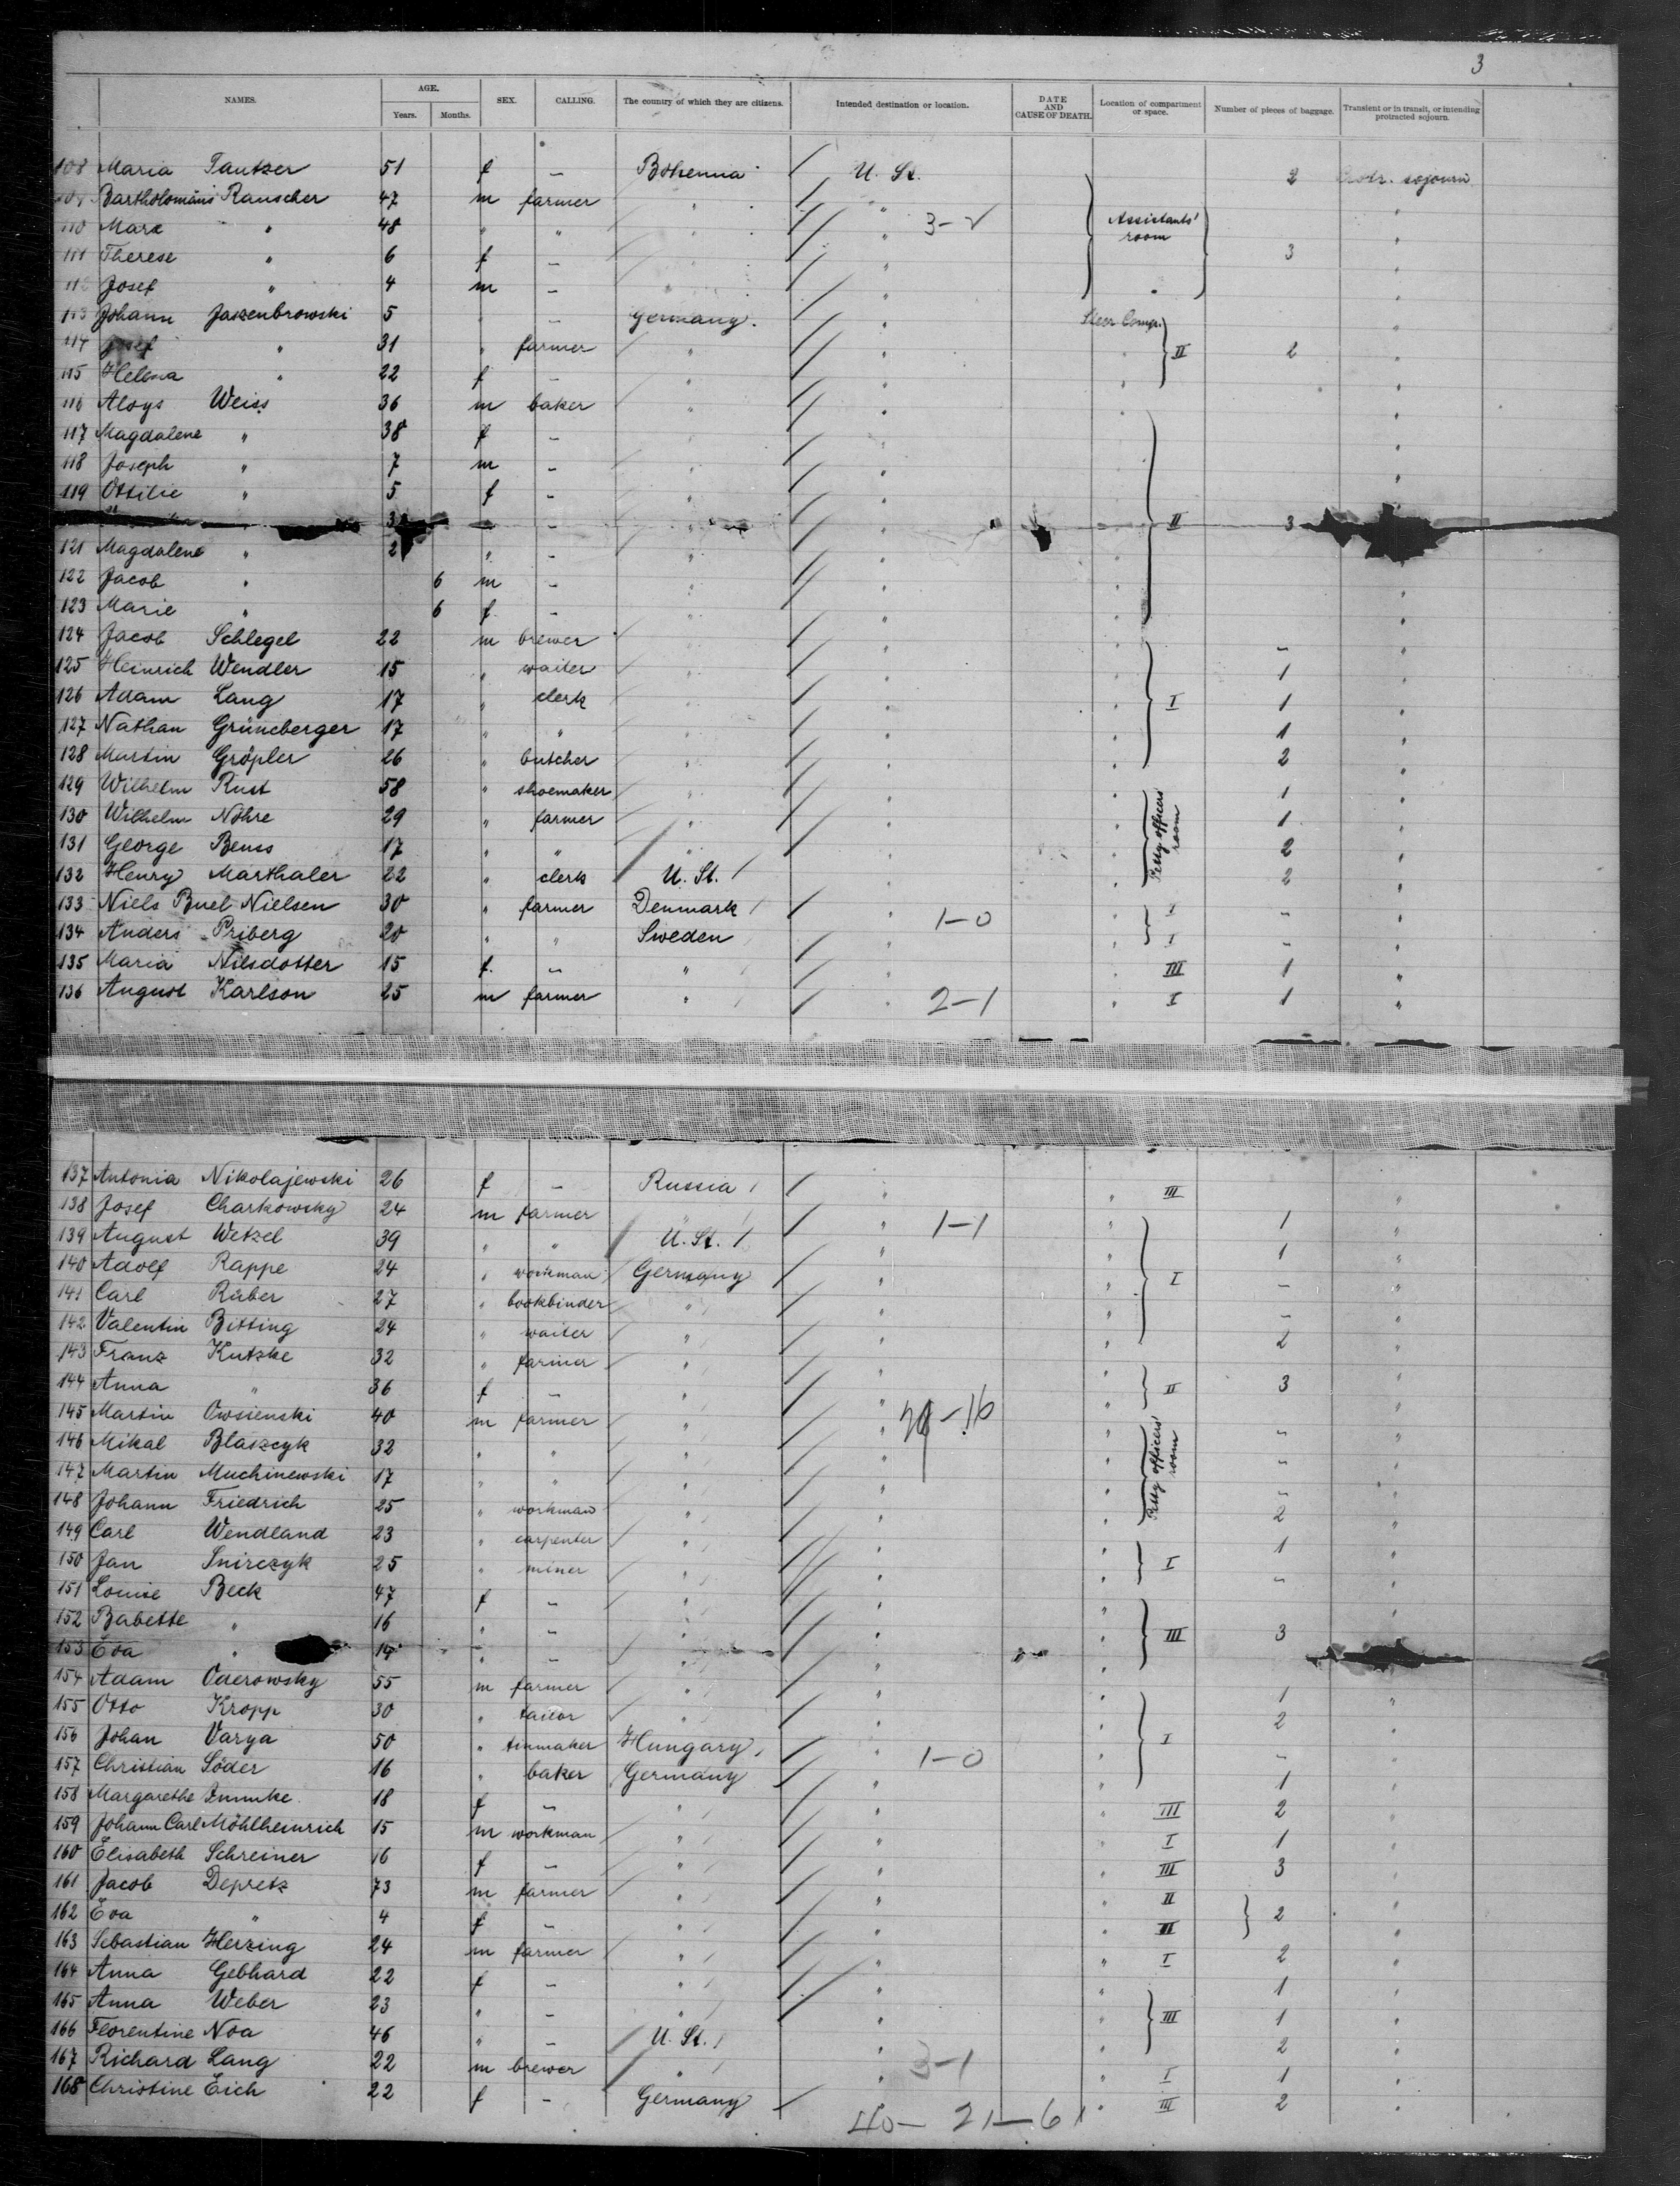 3
NAMES. AGE. Years. Months. SEX. CALLING. The country of which they are citizens. Intended destination or location. DATE AND CAUSE OF DEATH. Location of compartment or space. Number of pieces of baggage. Transient or in transit, or intending protracted sojourn.
108 Maria Tautzer 51 f – Bohemia U. St. 2 sojourn
Bartholomäus Rauscher 47 m farmer " "
110 Marx " 48 " " " " 3- Assistants' room "
111 Therese " 6 f – " " 3 "
112 Josef " 4 m – " " "
113 Johann Jaszenbrowski 5 – Germany. " Steer Comp. "
114 Josef " 31 " farmer " " " II 2 "
115 Helena " 22 f – " " " "
116 Aloys Weiss 36 m baker " " " "
117 Magdalene " 38 f – " " " "
118 Joseph " 7 m – " " " "
119 Ottilie " 5 f – " " " "
3 – " " II 3
121 Magdalene " 2 " – " " "
122 Jacob " 6 m – " " " "
123 Marie " 6 f – " " " "
124 Jacob Schlegel 22 m brewer " " " – "
125 Heinrich Wendler 15 " waiter " " " 1 "
126 Adam Lang 17 " clerk " " " I 1 "
127 Nathan Grüneberger 17 " " " " " 1 "
128 Martin Gröpler 26 " butcher " " " 2 "
129 Wilhelm Rust 58 " shoemaker " " " 1 "
130 Wilhelm Nöhre 29 " farmer " " " Petty officers' room 1 "
131 George Benss 17 " " " " " 2 "
132 Henry Marthaler 22 " clerk U. St. " " 2 "
133 Niels Buel Nielsen 30 " farmer Denmark " 1-0 " I – "
134 Anders Priberg 20 " " Sweden " " I – "
135 Maria Nilsdotter 15 f. – " " " III 1 "
136 August Karlson 25 m farmer " " 2-1 " I 1 "
137 Antonia Nikolajewski 26 f – Russia " " III "
138 Josef Charkowsky 24 m farmer " " 1-1 " 1 "
139 August Wetzel 39 " " U. St. " " 1 "
140 Adolf Rappe 24 " workman Germany " " I – "
141 Carl Räber 27 " bookbinder " " " – "
142 Valentin Bitting 24 " waiter " " " 2 "
143 Franz Kutzke 32 " farmer " " " 3 "
144 Anna " 36 f – " " " II "
145 Martin Owsienski 40 m farmer " " -16 " – "
146 Mikal Blaszcyk 32 " " " " " Petty officers' room – "
147 Martin Muchinewski 17 " " " " " – "
148 Johann Friedrich 25 " workman " " " 2 "
149 Carl Wendland 23 " carpenter " " " 1 "
150 Jan Snirczyk 25 " miner " " " I – "
151 Louise Beck 47 f – " " " "
152 Babette " 16 " – " " " III 3
153 Eva " 14 " – " "
154 Adam Oderowsky 55 m farmer " " " 1 "
155 Otto Kropp 30 " tailor " " " 2 "
156 Johan Varga 50 " tinmaker Hungary " 1-0 " I – "
157 Christian Söder 16 " baker Germany " " 1 "
158 Margarethe Zumke 18 f – " " " III 2 "
159 Johann Carl Möhlheinrich 15 m workman " " " I 1 "
160 Elisabeth Schreiner 16 f – " " " III 3 "
161 Jacob Depretz 73 m farmer " " " II 2 "
162 Eva " 4 f – " " " "
163 Sebastian Herzing 24 m farmer " " " I 2 "
164 Anna Gebhard 22 f – " " " 1 "
165 Anna Weber 23 " – " " " III 1 "
166 Florentine Noa 46 " – U. St. " " 2 "
167 Richard Lang 22 m brewer " " 3-1 " I 1 "
168 Christine Eich 22 f – Germany " " III 2 "
21-61